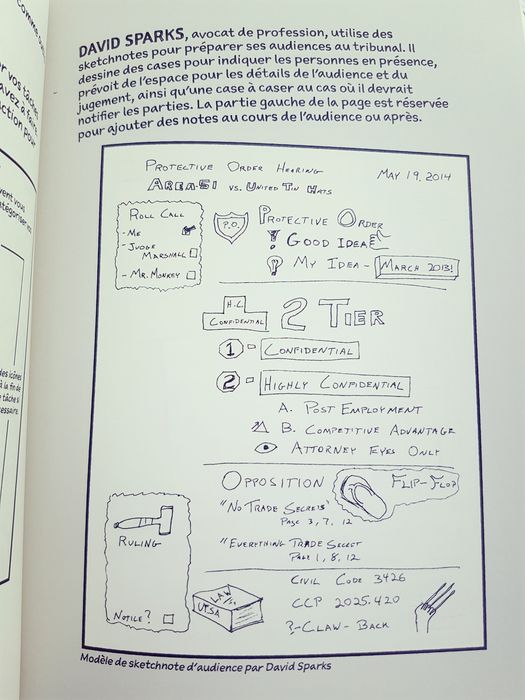 Comme Sur
DAVID SPARKS, avocat de profession, utilise des
sketchnotes pour préparer ses audiences au tribunal. Il
dessine des cases pour indiquer les personnes en présence,
prévoit de l'espace pour les détails de l'audience et du
jugement, ainsi qu'une case à caser au cas où il devrait
notifier les parties. La partie gauche de la page est réservée
pour ajouter des notes au cours de l'audience ou après.
PROTECTIVE ORDER HEARING
MAY 19, 2014
AREA-51 VS. UNITED TIN HATS
ROLL CALL
- ME
- JUDGE
MARSHALL
- MR. MONKEY
P.O.
PROTECTIVE ORDER
! GOOD IDEA
MY IDEA - MARCH 2013!
H.C.
CONFIDENTIAL
2 TIER
1 = CONFIDENTIAL
2 = HIGHLY CONFIDENTIAL
A. POST EMPLOYMENT
B. COMPETITIVE ADVANTAGE
ATTORNEY EYES ONLY
OPPOSITION
FLIP-FLOP
"NO TRADE SECRETS"
PAGE 3, 7, 12
"EVERYTHING TRADE SECRET
PAGE 1, 8, 12
RULING
NOTICE?
LAW
UTSA
CIVIL CODE 3426
CCP 2025.420
?-CLAW-BACK
Modèle de sketchnote d'audience par David Sparks